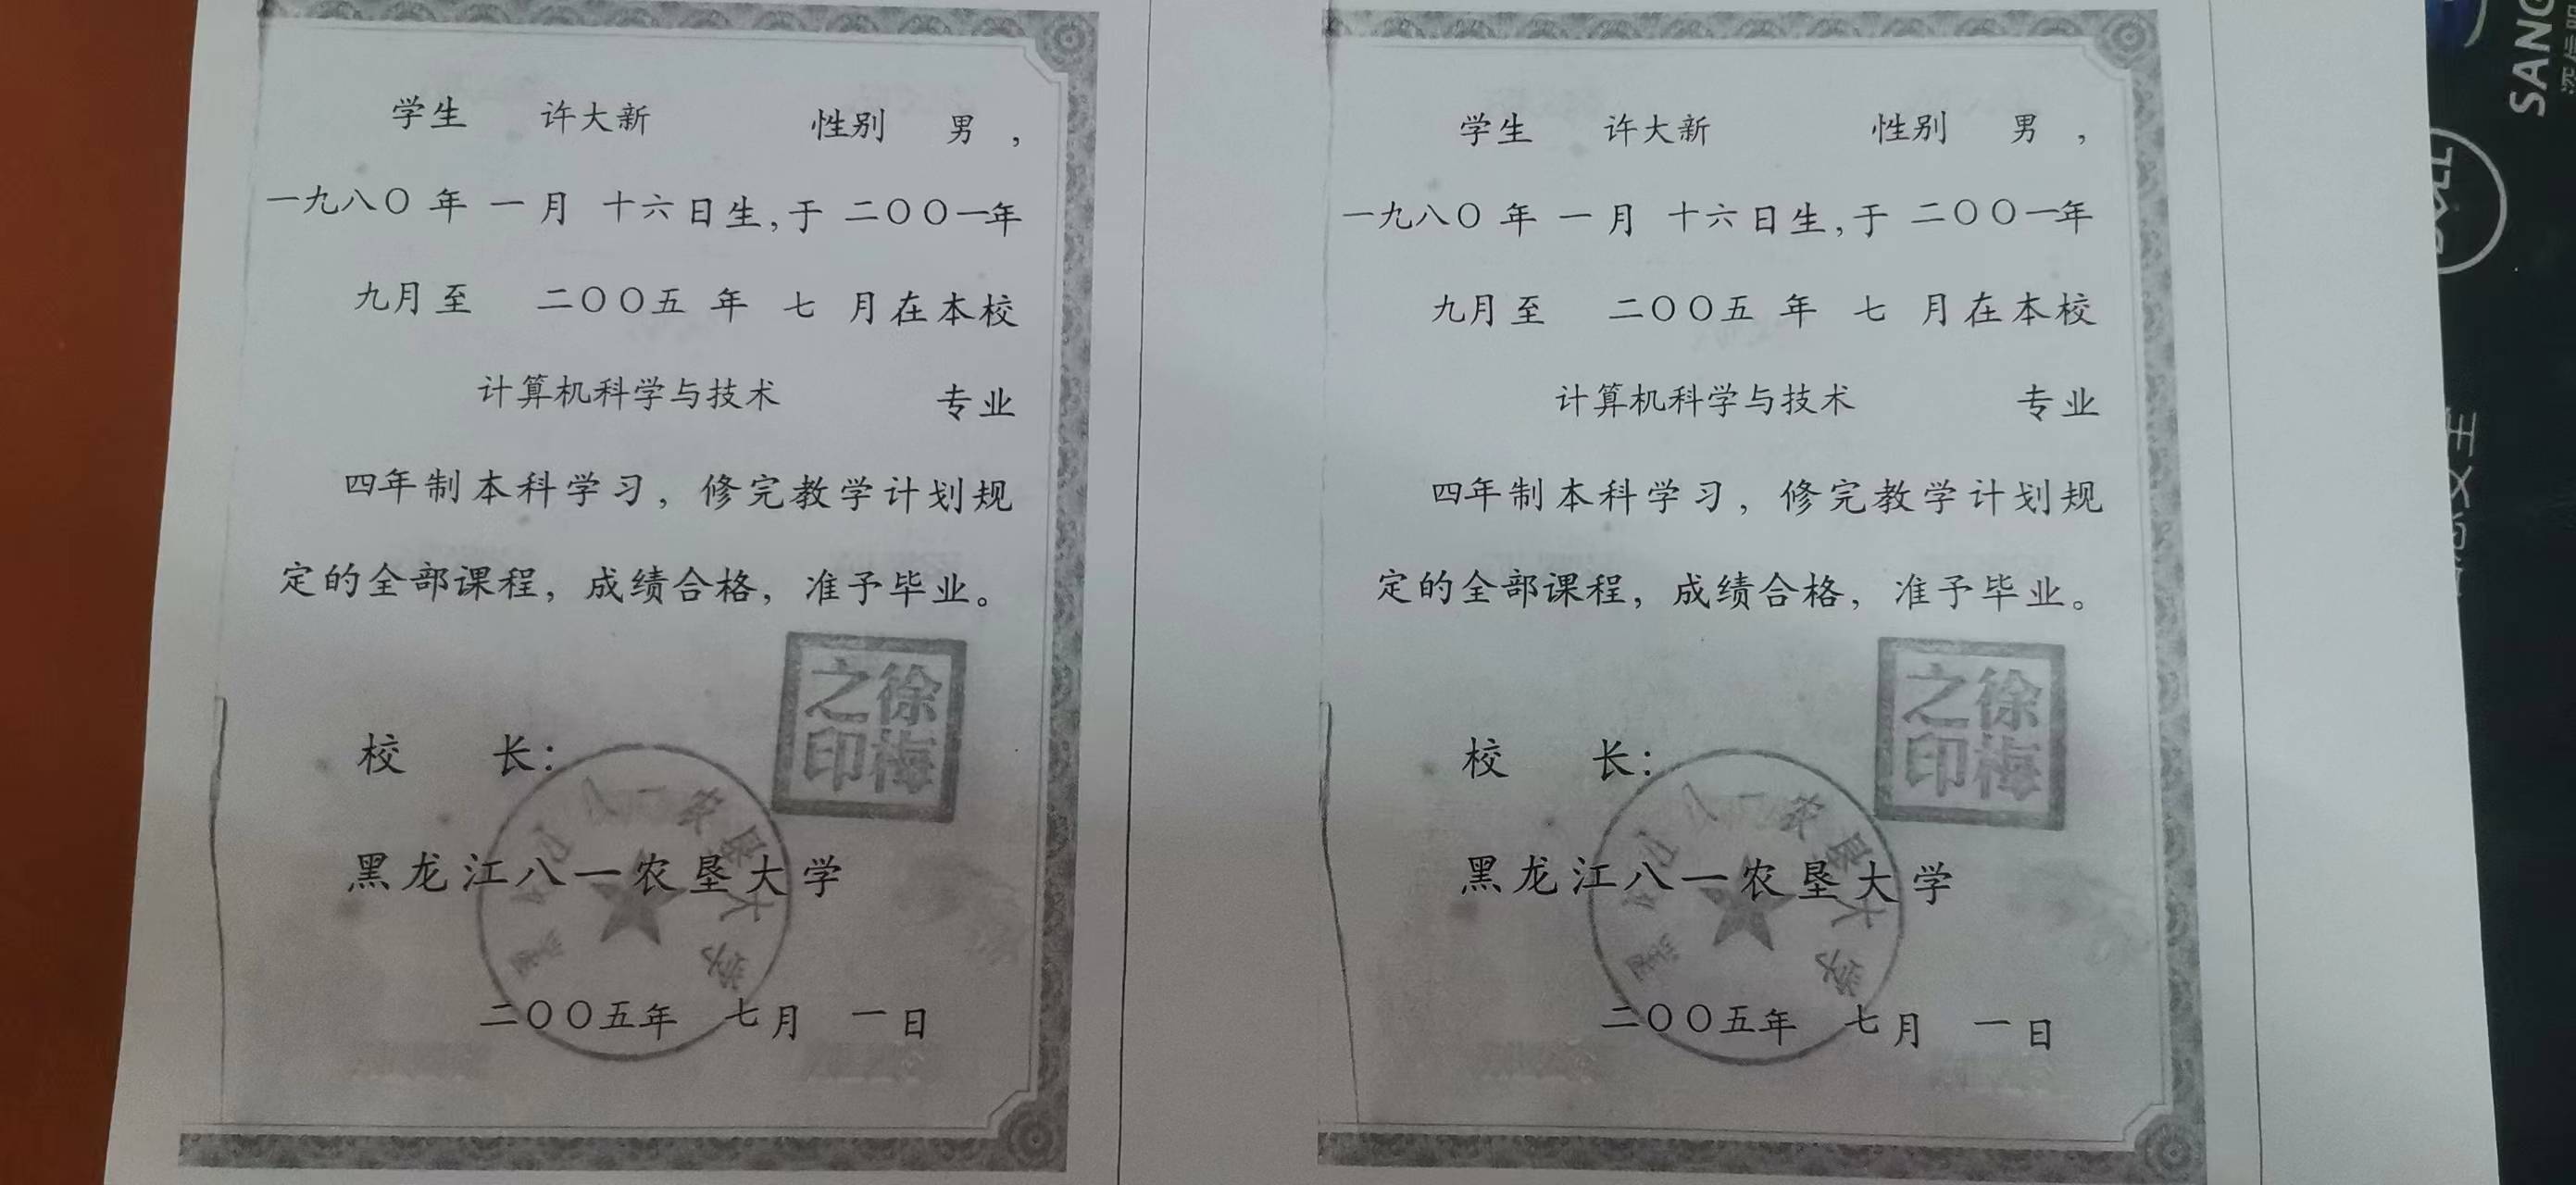 学生 许大新 性别 男，
一九八〇年 一月 十六日生，于 二〇〇一年
九月至 二〇〇五年 七 月在本校
计算机科学与技术 专业
四年制本科学习，修完教学计划规
定的全部课程，成绩合格，准予毕业。
徐梅之印
校 长：
黑龙江八一农垦大学
二〇〇五年 七月 一日
学生 许大新 性别 男，
一九八〇年 一月 十六日生，于 二〇〇一年
九月至 二〇〇五年 七 月在本校
计算机科学与技术 专业
四年制本科学习，修完教学计划规
定的全部课程，成绩合格，准予毕业。
徐梅之印
校 长：
黑龙江八一农垦大学
二〇〇五年 七月 一日
SANG
DELL